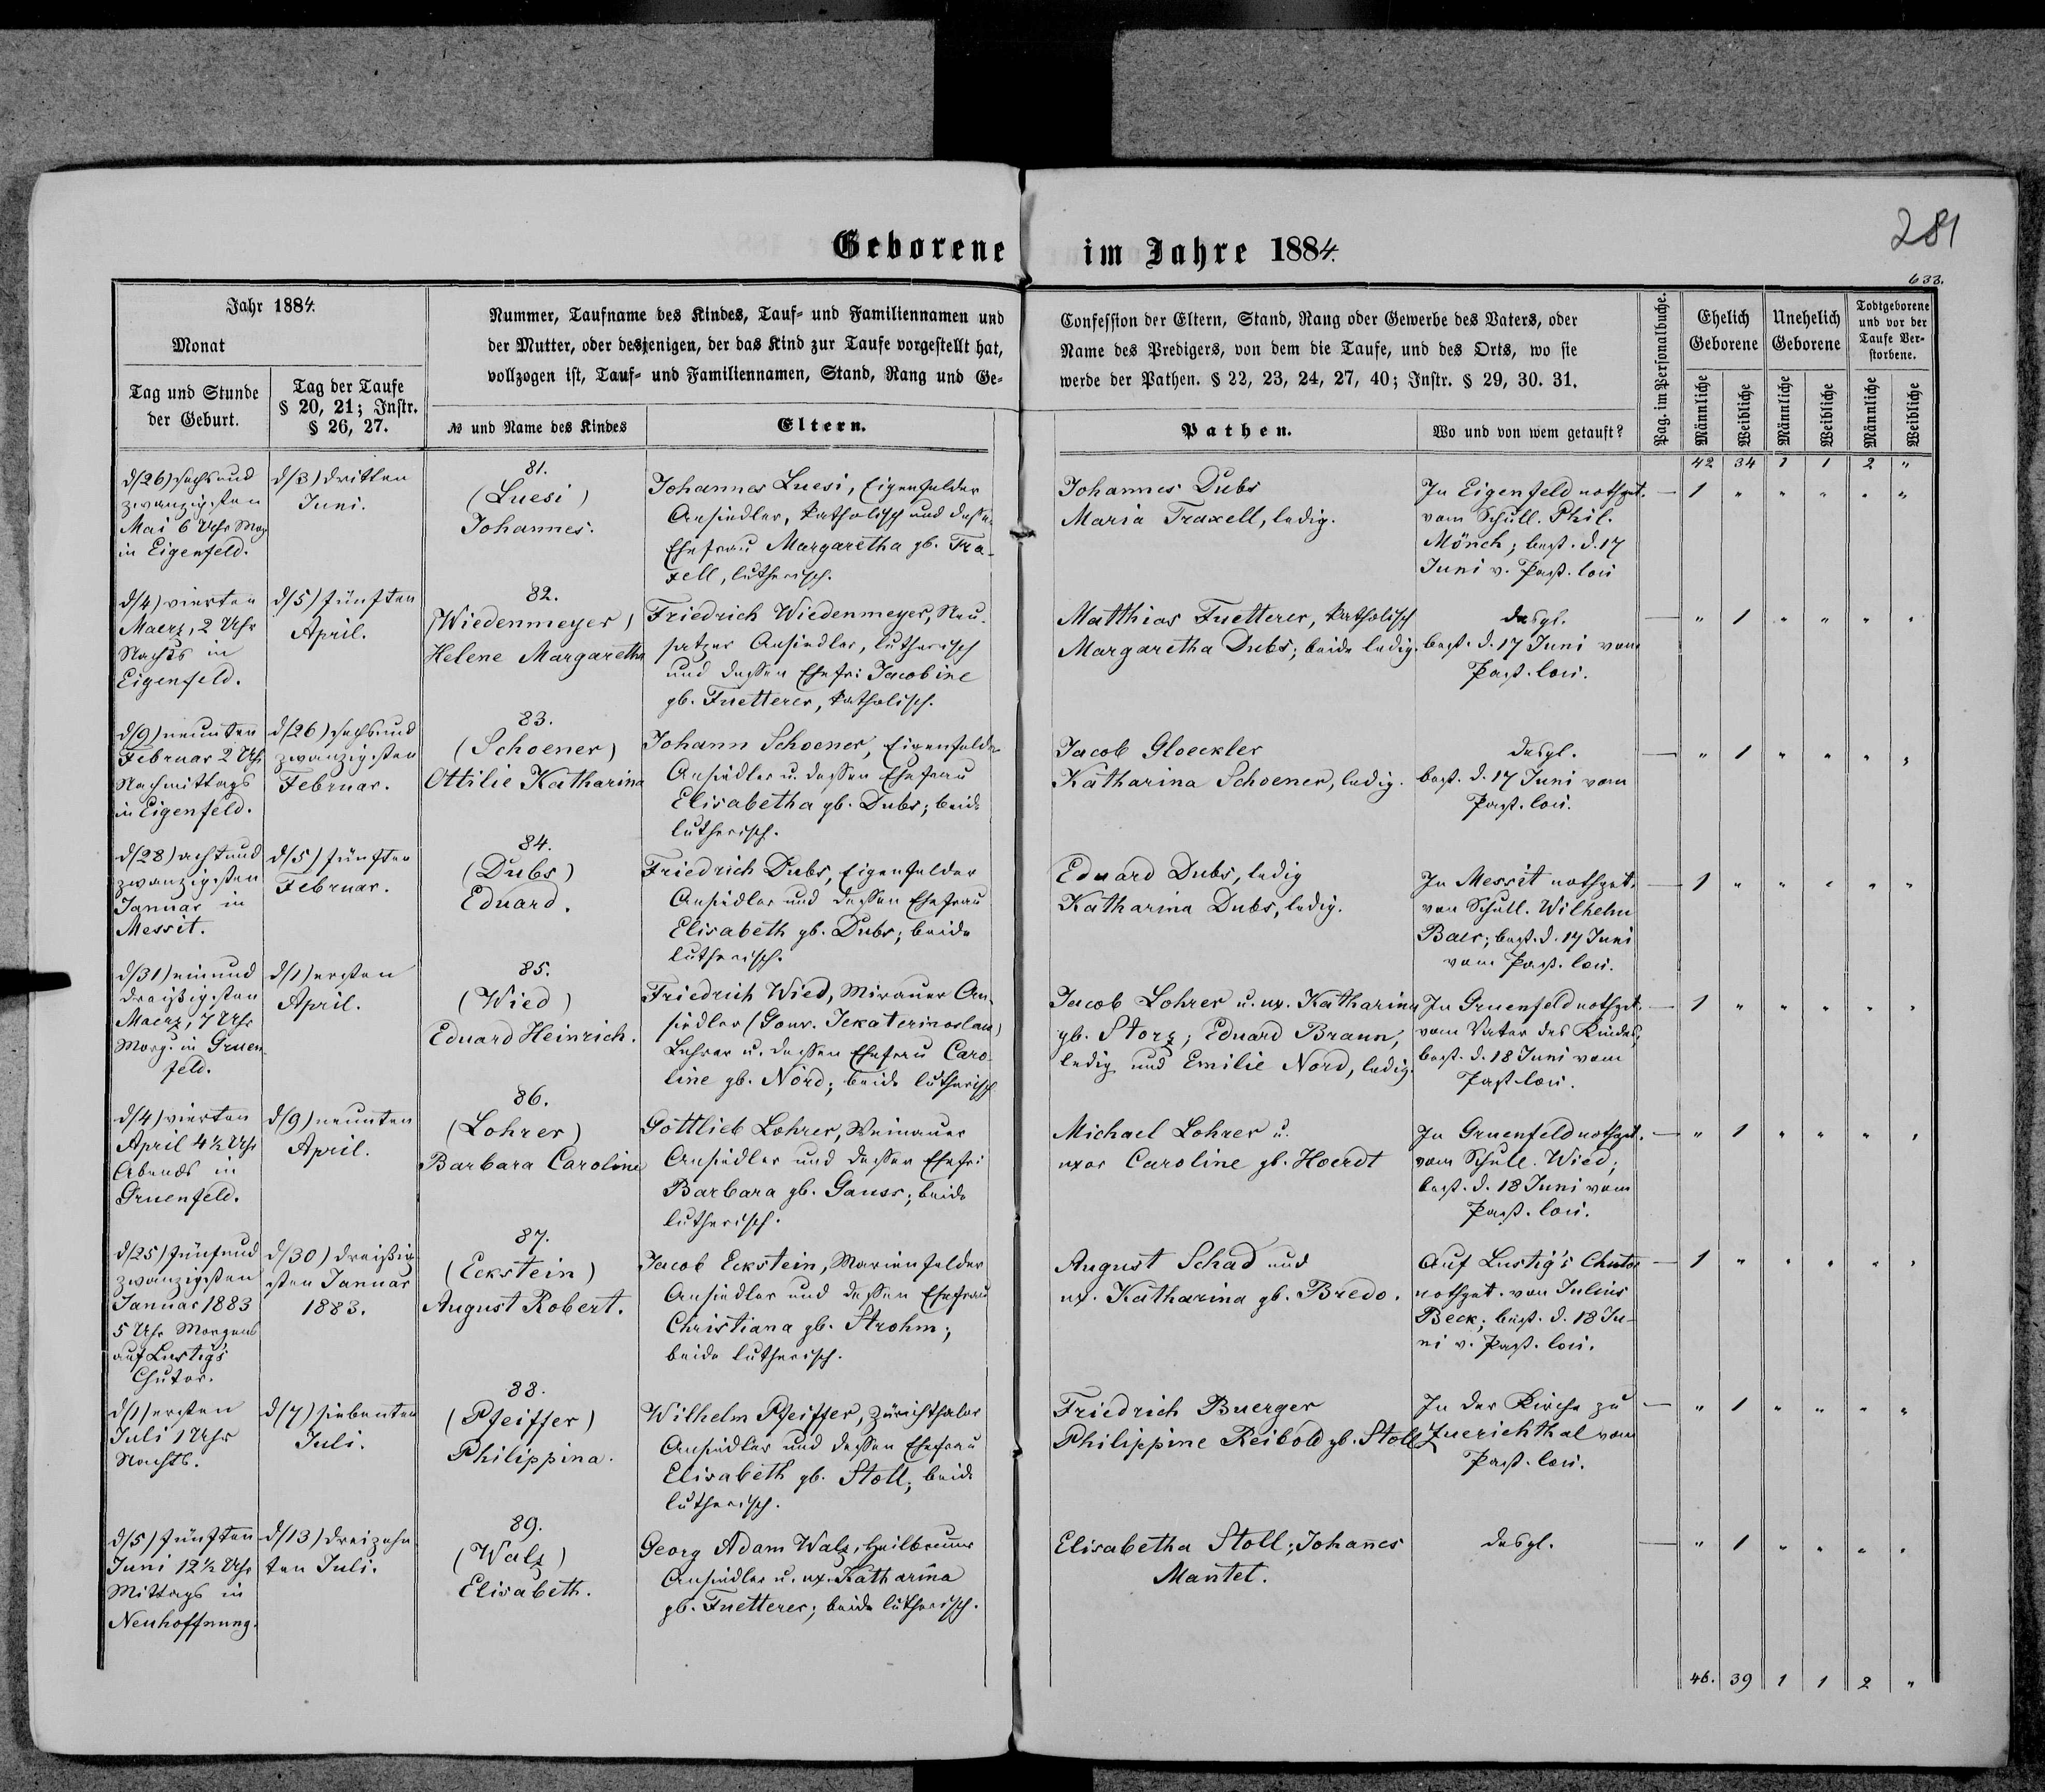 281
Geborene im Jahre 1884.
633.
Jahr 1884.
Monat
Tag und Stunde
der Geburt.
Tag der Taufe
§ 20, 21; Instr.
§ 26, 27.
Nummer, Taufname des Kindes, Tauf- und Familiennamen und
der Mutter, oder desjenigen, der das Kind zur Taufe vorgestellt hat,
vollzogen ist, Tauf- und Familiennamen, Stand, Rang und Ge-
№ und Name des Kindes
Eltern.
Confession der Eltern, Stand, Rang oder Gewerbe des Vaters, oder
Name des Predigers, von dem die Taufe, und des Orts, wo sie
werde der Pathen. § 22, 23, 24, 27, 40; Instr. § 29, 30. 31.
Pathen.
Wo und von wem getauft?
Pag. im Personalbuche.
Ehelich
Geborene
Unehelich
Geborene
Todtgeborene
und vor der
Taufe Ver-
storbene.
Männliche
Weibliche
Männliche
Weibliche
Männliche
Weibliche
42 34 1 1 2 "
d/26) sechsund
zwanzigsten
Mai 6 Uhr Morg
in Eigenfeld.
d/3) dritten
Juni.
81.
(Luesi)
Johannes.
Johannes Luesi, Eigenfelder
Ansiedler, katholisch und dessen
Ehefrau Margaretha gb. Tra-
xell, lutherisch.
Johannes Dubs
Maria Traxell, ledig.
In Eigenfeld nothget.
vom Schull. Phil.
Mönch; best. d. 17
Juni v. Past. loci
— 1 " " " " "
d/4) vierten
Maerz, 2 Uhr
Nachts in
Eigenfeld.
d/5) fünften
April.
82.
(Wiedenmeyer)
Helene Margaretha
Friedrich Wiedenmeyer, Neu-
satzer Ansiedler, lutherisch
und dessen Ehefr: Jacobine
gb. Fuetterer, katholisch.
Matthias Fuetterer, katholisch
Margaretha Dubs; beide ledig.
desgl.
best. d. 17 Juni vom
Past. loci.
— " 1 " " " "
d/9) neunten
Februar 2 Uhr
Nachmittags
in Eigenfeld.
d/26) sechsund
zwanzigsten
Februar.
83.
(Schoener)
Ottilie Katharina
Johann Schoener, Eigenfelder
Ansiedler u. dessen Ehefrau
Elisabetha gb. Dubs; beide
lutherisch.
Jacob Gloeckler
Katharina Schoener, ledig.
desgl.
best. d. 17 Juni vom
Past. loci.
— " 1 " " " "
d/28) achtund
zwanzigsten
Januar in
Messit.
d/5) fünften
Februar.
84.
(Dubs)
Eduard.
Friedrich Dubs, Eigenfelder
Ansiedler und dessen Ehefrau
Elisabeth gb. Dubs; beide
lutherisch.
Eduard Dubs, ledig
Katharina Dubs, ledig.
In Messit nothget.
von Schull. Wilhelm
Baer; best. d. 17 Juni
vom Past. loci.
— 1 " " " " "
d/31) einund
dreißigsten
Maerz, 7 Uhr
Morg. in Gruen-
feld.
d/1) ersten
April.
85.
(Wied)
Eduard Heinrich.
Friedrich Wied, Mirauer An-
siedler (Gouv. Jekaterinoslaw)
Lehrer u. dessen Ehefrau Caro-
line gb. Nord; beide lutherisch
Jacob Lohrer u. ux. Katharina
gb. Storz; Eduard Braun,
ledig und Emilie Nord, ledig.
In Gruenfeld nothget.
vom Vater des Kindes;
best. d. 18 Juni vom
Past. loci.
— 1 " " " " "
d/4) vierten
April 4½ Uhr
Abends in
Gruenfeld.
d/9) neunten
April.
86.
(Lohrer)
Barbara Caroline
Gottlieb Lohrer, Weinauer
Ansiedler und dessen Ehefr:
Barbara gb. Gauss; beide
lutherisch.
Michael Lohrer u.
uxor Caroline gb. Hoerdt
In Gruenfeld nothget.
vom Schull. Wied;
best. d. 18 Juni vom
Past. loci.
— " 1 " " " "
d/25) fünfund
zwanzigsten
Januar 1883
5 Uhr Morgens
auf Lustig's
Chutor.
d/30) dreißig-
sten Januar
1883.
87.
(Eckstein)
August Robert.
Jacob Eckstein, Marienfelder
Ansiedler und dessen Ehefrau
Christiana gb. Strohm;
beide lutherisch.
August Schad und
ux. Katharina gb. Bredo.
Auf Lustig's Chutor
nothget. von Julius
Beck; best. d. 18 Ju-
ni v. Past. loci.
— 1 " " " " "
d/1) ersten
Juli 1 Uhr
Nachts.
d/7) siebenten
Juli.
88.
(Pfeiffer)
Philippina.
Wilhelm Pfeiffer, Zürichthaler
Ansiedler und dessen Ehefrau
Elisabeth gb. Stoll; beide
lutherisch.
Friedrich Buerger
Philippine Reibold gb. Stoll
In der Kirche zu
Zuerichthal vom
Past. loci.
— " 1 " " " "
d/5) fünften
Juni 12½ Uhr
Mittags in
Neuhoffnung.
d/13) dreizehn
ten Juli.
89.
(Walz)
Elisabeth.
Georg Adam Walz, Heilbrunner
Ansiedler u. ux. Katharina
gb. Fuetterer; beide lutherisch.
Elisabetha Stoll; Johañes
Mantet.
desgl.
— " 1 " " " "
46. 39 1 1 2 "